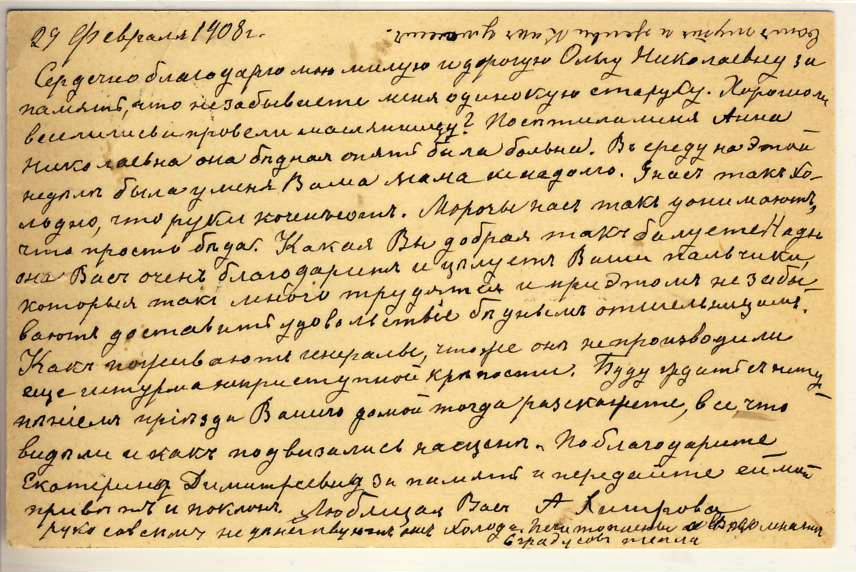 29 Февраля 1908 г.
Сердечно благодарю мою милую и дорогую Ольгу Николаевну за
память, что не забываете меня одинокую старуху. Хорошо ли
веселились и провели маслянницу? Посетила меня Анна
Николаевна она бѣдная опять была больна. Въ среду на этой
недѣлѣ была у меня Ваша мама не надолго. У насъ такъ хо-
лодно, что руки коченѣютъ. Морозы насъ такъ донимаютъ,
что просто бѣда. Какая Вы добрая такъ балуете Надю
она Васъ очень благодаритъ и цѣлуетъ Ваши пальчики,
которыя такъ много трудятся и при этомъ не забы
ваютъ доставить удовольствіе бѣднымъ отшельницамъ.
Какъ поживаютъ генералы, что же онѣ не производили
еще штурма неприступной крѣпости. Буду ждать съ нетер
пѣніемъ пріѣзда Вашего домой тогда разскажете, все, что
видѣли и какъ подвизались на сценѣ. Поблагодарите
Екатерину Димитріевну за память и передайте ей мой
привѣтъ и поклонъ. Любящая Васъ А
холода
6 градусовъ тепла